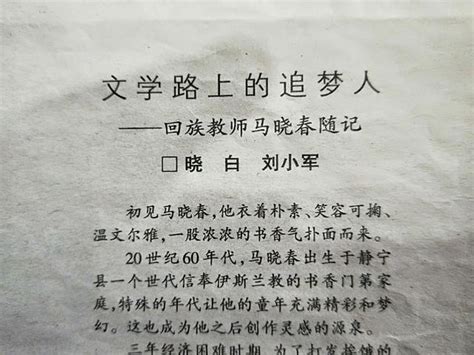 文学路上的追梦人
——回族教师马晓春随记
□晓 白 刘小军
初见马晓春，他衣着朴素、笑容可掬、
温文尔雅，一股浓浓的书香气扑面而来。
20世纪60年代，马晓春出生于静宁
县一个世代信奉伊斯兰教的书香门第家
庭，特殊的年代让他的童年充满精彩和梦
幻。这也成为他之后创作灵感的源泉。
三年经济困难时期，为了打发挨饿的